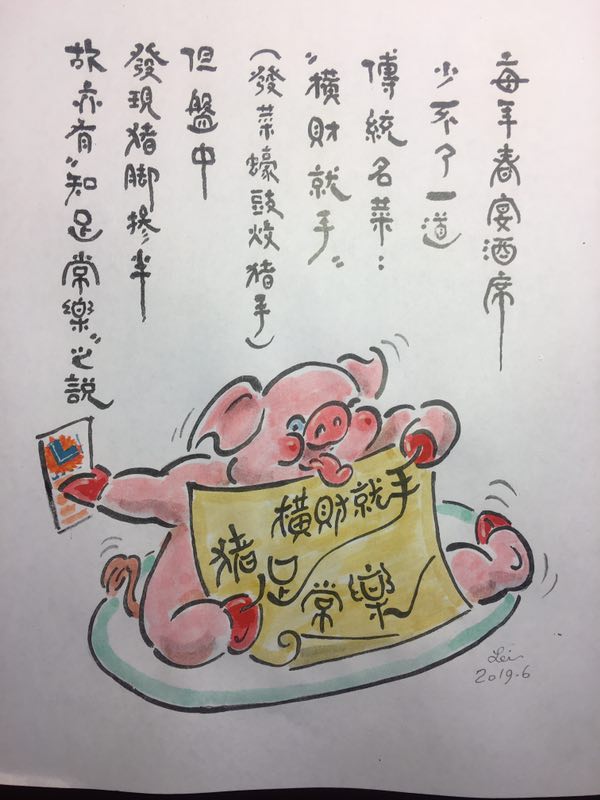 每年春宴酒席
少不了一道
傳統名菜：
"橫財就手"
（發菜蠔豉炆猪手）
但盤中
發現猪脚摻半
故亦有"知足常樂"之說
橫財就手
猪足常樂
Lei
2019.6